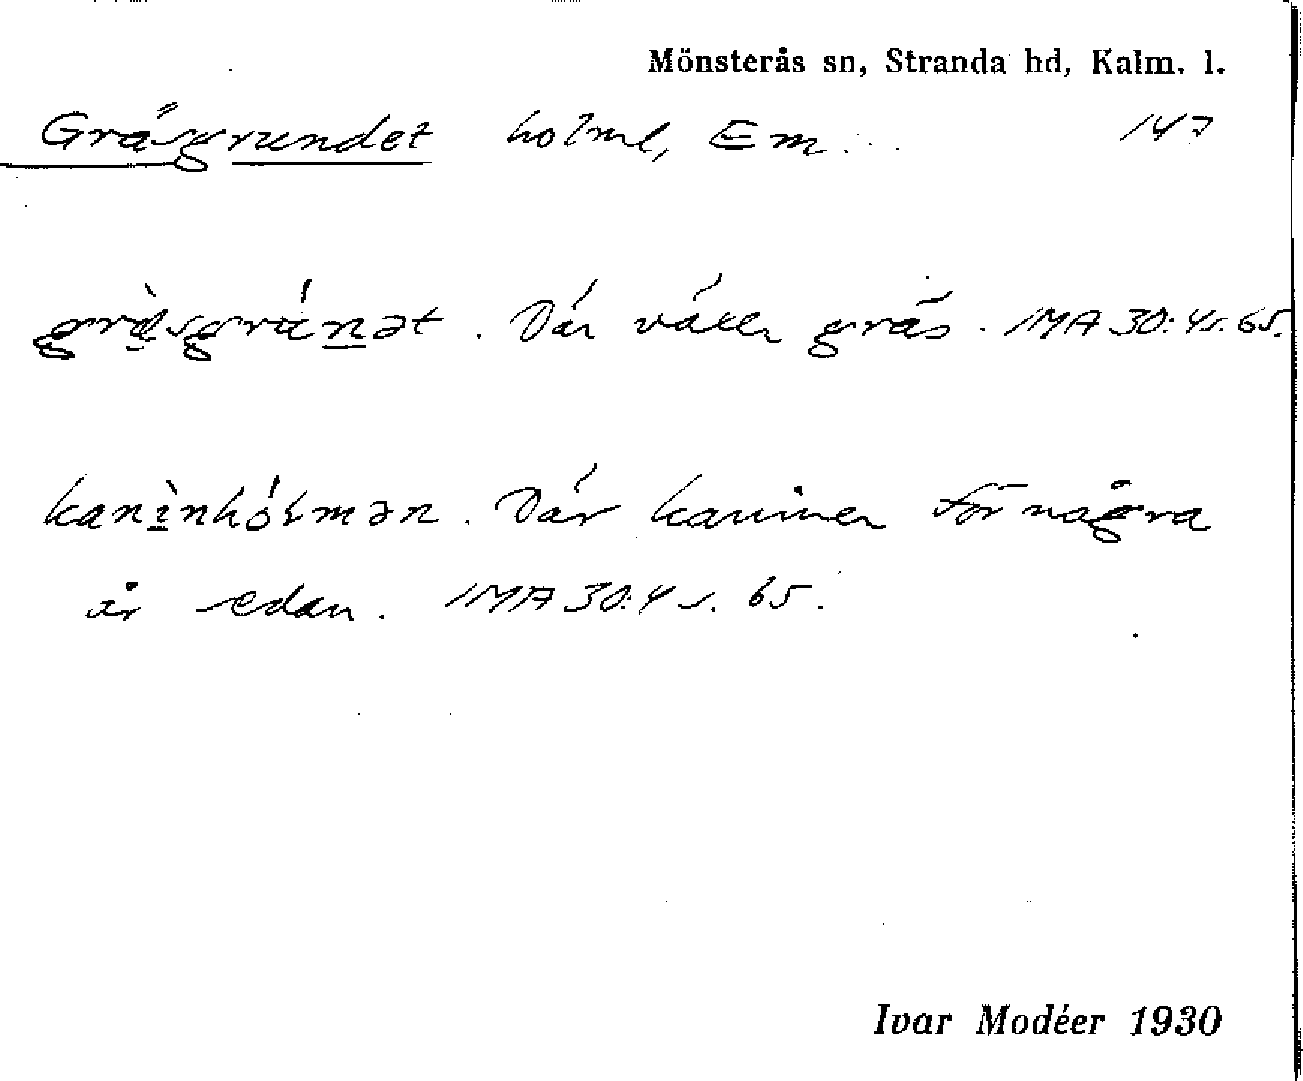 Mönsterås sn, Stranda hd, Kalm. l.
Gräsgrundet holme, Em. 147
grὰsgrúnət. Där växer gräs. IMA 30:4 s. 65.
kanìnhólmən. Där kaniner för några
år sedan. IMA 30:4 s. 65.
Ivar Modéer 1930